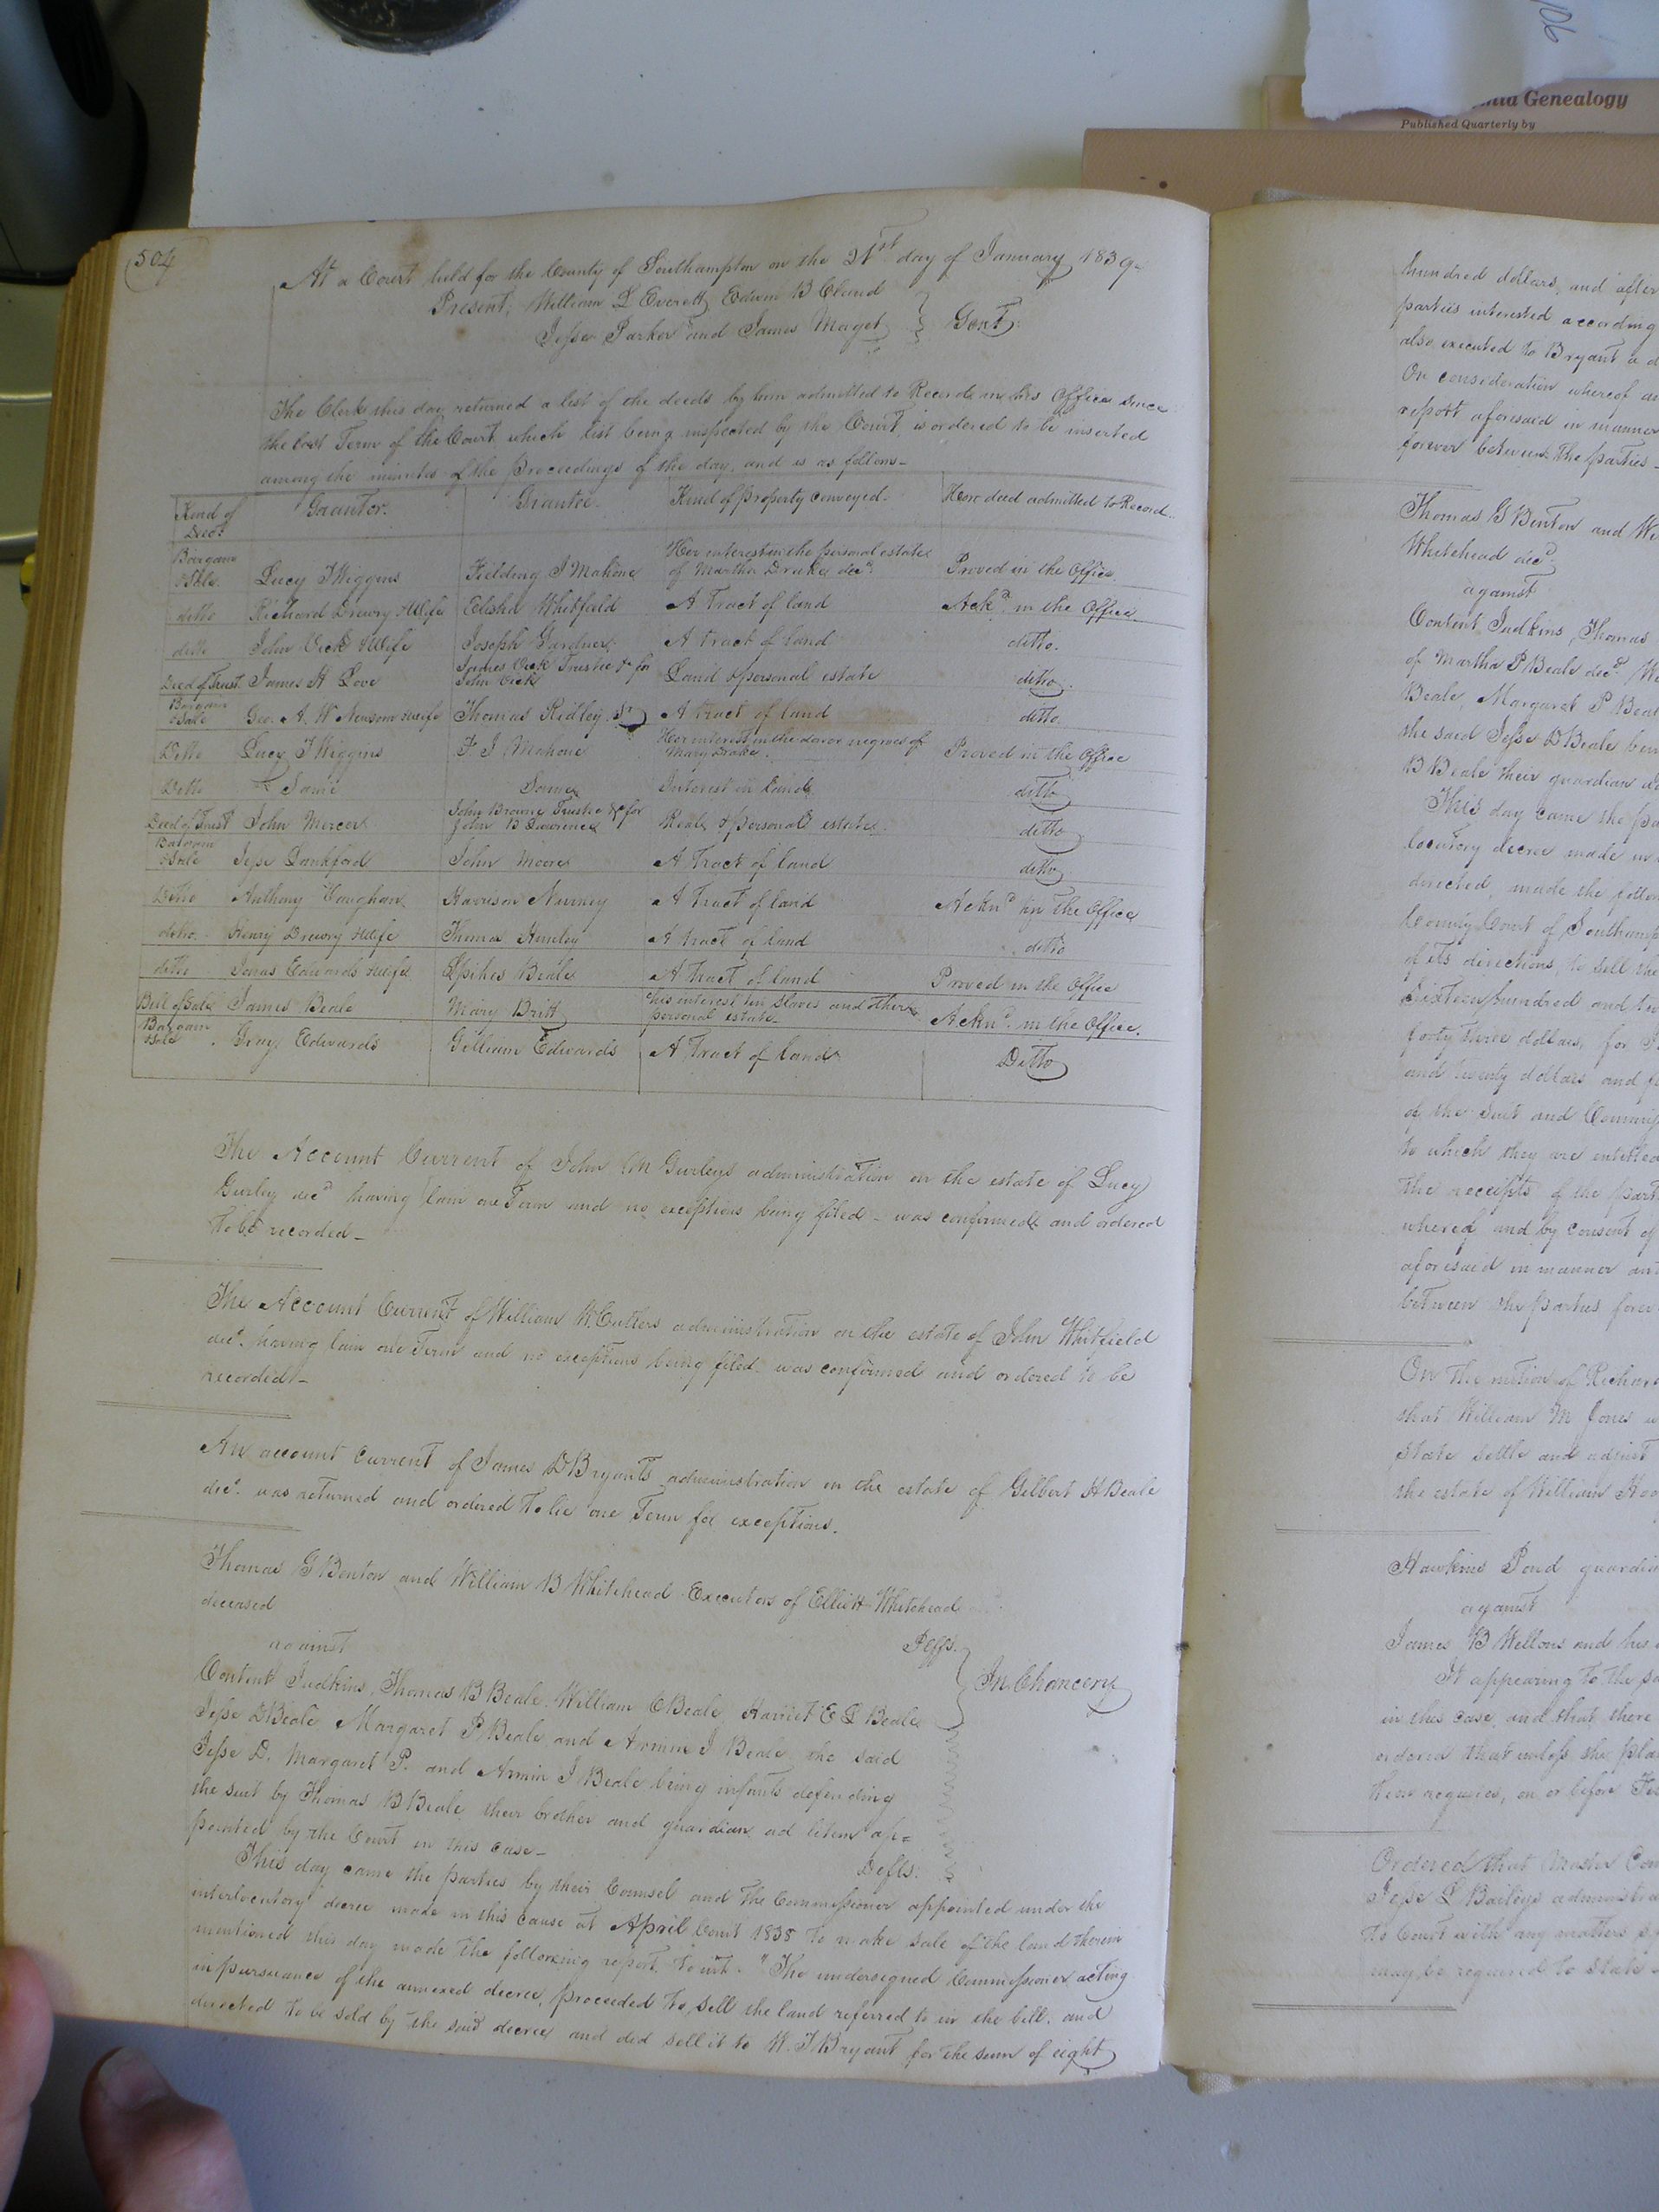 06
nia Genealogy
Published Quarterly by
504
At a Court held for the County of Southampton on the 21st day of January 1839-
Present, William L Everett, Edwin B Claud
Jesse Parker and James Maget } Gent.
The Clerk this day returned a list of the deeds by him admitted to Record in his Office since
the last Term of the Court which list being inspected by the Court, is ordered to be inserted
among the minutes of the proceedings of the day, and is as follows-
Kind of Deed Grantor. Grantee. Kind of property conveyed. How deed admitted to Record.
Bargain &Sale. Lucy T Wiggins Fielding J Mahone Her interest in the personal estate of Martha Drake decd. Proved in the Office
ditto Richard Drewry &Wife Elisha Whitfield A Tract of land Ackd. in the Office.
ditto John Vick &Wife Joseph Gardner A tract of land ditto.
Deed of Trust. James H Love James Vick Trustee &c for John Vick Land &personal estate ditto.
Bargain &Sale Geo. A. W Newsom &wife Thomas Ridley Sr A tract of land ditto
Ditto Lucy T Wiggins F. J Mahone Her interest in the dower negroes of Mary Drake. Proved in the Office
Ditto Same Same Interest in land ditto
Deed of Trust John Mercer John Browne Trustee &c for John B Lawrence Real &personal estate ditto
Bargain &Sale Jesse Lankford John Moore A Tract of land ditto
Ditto Anthony Vaughan Harrison Nurney A Tract of land Acknd in the Office
ditto. Henry Drewry &Wife Thomas Hunley A tract of land ditto
ditto Jonas Edwards &wife Spikes Beale A Tract of land Proved in the Office
Bill of Sale James Beale Mary Britt his interest in slaves and other personal estate- Acknd. in the Office.
Bargain &Sale Gray Edwards Gilliam Edwards A Tract of land Ditto
The Account Current of John M Gurleys administration on the estate of Lucy
Gurley decd having lain one Term and no exceptions being filed - was confirmed and ordered
to be recorded-
The Account Current of William W. Cutlers administration on the estate of John Whitfield
decd. having lain one Term and no exceptions being filed was confirmed and ordered to be
recorded-
An account Current of James D Bryants administration on the estate of Gilbert H Beale
decd. was returned and ordered to lie one Term for exceptions.
Thomas G Benton and William B Whitehead Executors of Elliott Whitehead
deceased Plffs.
against
Content Judkins, Thomas B Beale, William C Beale, Harriet E L Beale } In Chancery
Jesse D Beale, Margaret P Beale and Armin J Beale, the said
Jesse D. Margaret P. and Armin J Beale being infants defending
the suit by Thomas B Beale their brother and guardian ad litem ap=
pointed by the Court in this case- Defts.
This day came the parties by their Counsel and the Commissioner appointed under the
interlocutory decree made in this cause at April Court 1838 to make sale of the land therein
mentioned this day made the following report, to wit. "The undersigned Commissioner acting
in pursuance of the annexed decree, proceeded to sell the land referred to in the bill, and
directed to be sold by the said decree and did sell it to W. J Bryant for the sum of eight
hundred dollars, and after
parties interested according
also executed to Bryant a d
On consideration whereof an
report aforesaid in manner
forever between the parties-
Thomas G Benton and Wi
Whitehead decd.
against
Content Judkins, Thomas
of Martha P Beale decd. W
Beale, Margaret P Beal
the said Jesse D Beale bein
B Beale their guardian ad
This day came the pa
locutory decree made in
directed, made the follow
County Court of Southamp
of its directions, to sell the
Sixteen hundred and tw
forty three dollars, for
and twenty dollars and
of the suit and Commis
to which they are entitled
The receipts of the part
whereof and by consent of
aforesaid in manner an
between the parties forev
On the motion of Richar
that William M Jones
State settle and adjust
the estate of William
Hawkins Pond guardia
against
James B Wellons and his
It appearing to the sa
in this case, and that there
ordered that unless the pla
then requires, on or before Fe
Ordered that Master Com
Jesse L Baileys administra
to Court with any matters sp
may be required to state